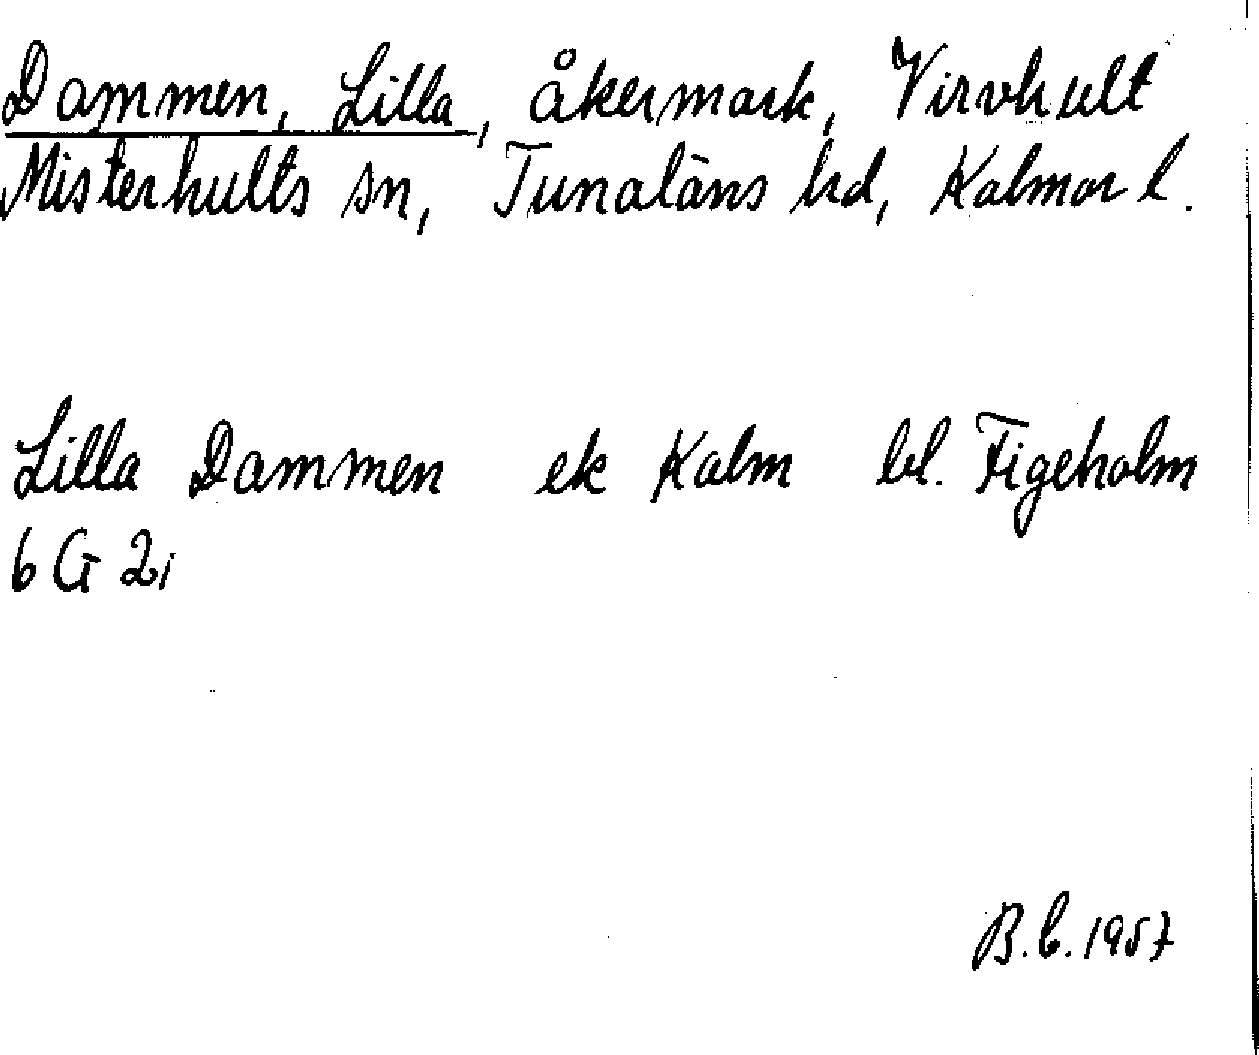 Dammen, Lilla, åkermark, Virvhult
Misterhults sn, Tunaläns hd, Kalmar l.
Lilla Dammen ek Kalm bl. Figeholm
6 G 2i
B.b. 1957